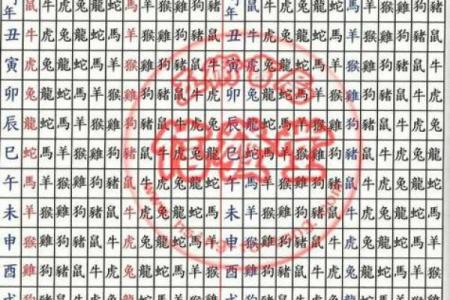 年 鼠 牛 虎 兔 龍 蛇 馬 羊 猴 雞 狗 豬 年 鼠 牛 虎 兔 龍 蛇 馬 羊 猴 雞 狗 豬
丑 牛 虎 兔 龍 蛇 馬 羊 猴 雞 狗 豬 鼠 丑 牛 虎 兔 龍 蛇 馬 羊 猴 雞 狗 豬 鼠
寅 虎 兔 龍 蛇 馬 羊 猴 雞 狗 豬 鼠 牛 寅 虎 兔 龍 蛇 馬 羊 猴 雞 狗 豬 鼠 牛
卯 兔 龍 蛇 馬 羊 猴 雞 狗 豬 鼠 牛 虎 卯 兔 龍 蛇 馬 羊 猴 雞 狗 豬 鼠 牛 虎
辰 龍 蛇 馬 羊 猴 雞 狗 豬 鼠 牛 虎 兔 辰 龍 蛇 馬 羊 猴 雞 狗 豬 鼠 牛 虎 兔
巳 蛇 馬 羊 猴 雞 狗 豬 鼠 牛 虎 兔 龍 巳 蛇 馬 羊 猴 雞 狗 豬 鼠 牛 虎 兔 龍
午 馬 羊 猴 雞 狗 豬 鼠 牛 虎 兔 龍 蛇 午 馬 羊 猴 雞 狗 豬 鼠 牛 虎 兔 龍 蛇
未 羊 猴 雞 狗 豬 鼠 牛 虎 兔 龍 蛇 馬 未 羊 猴 雞 狗 豬 鼠 牛 虎 兔 龍 蛇 馬
申 猴 雞 狗 豬 鼠 牛 虎 兔 龍 蛇 馬 羊 申 猴 雞 狗 豬 鼠 牛 虎 兔 龍 蛇 馬 羊
酉 雞 狗 豬 鼠 牛 虎 兔 龍 蛇 馬 羊 猴 酉 雞 狗 豬 鼠 牛 虎 兔 龍 蛇 馬 羊 猴